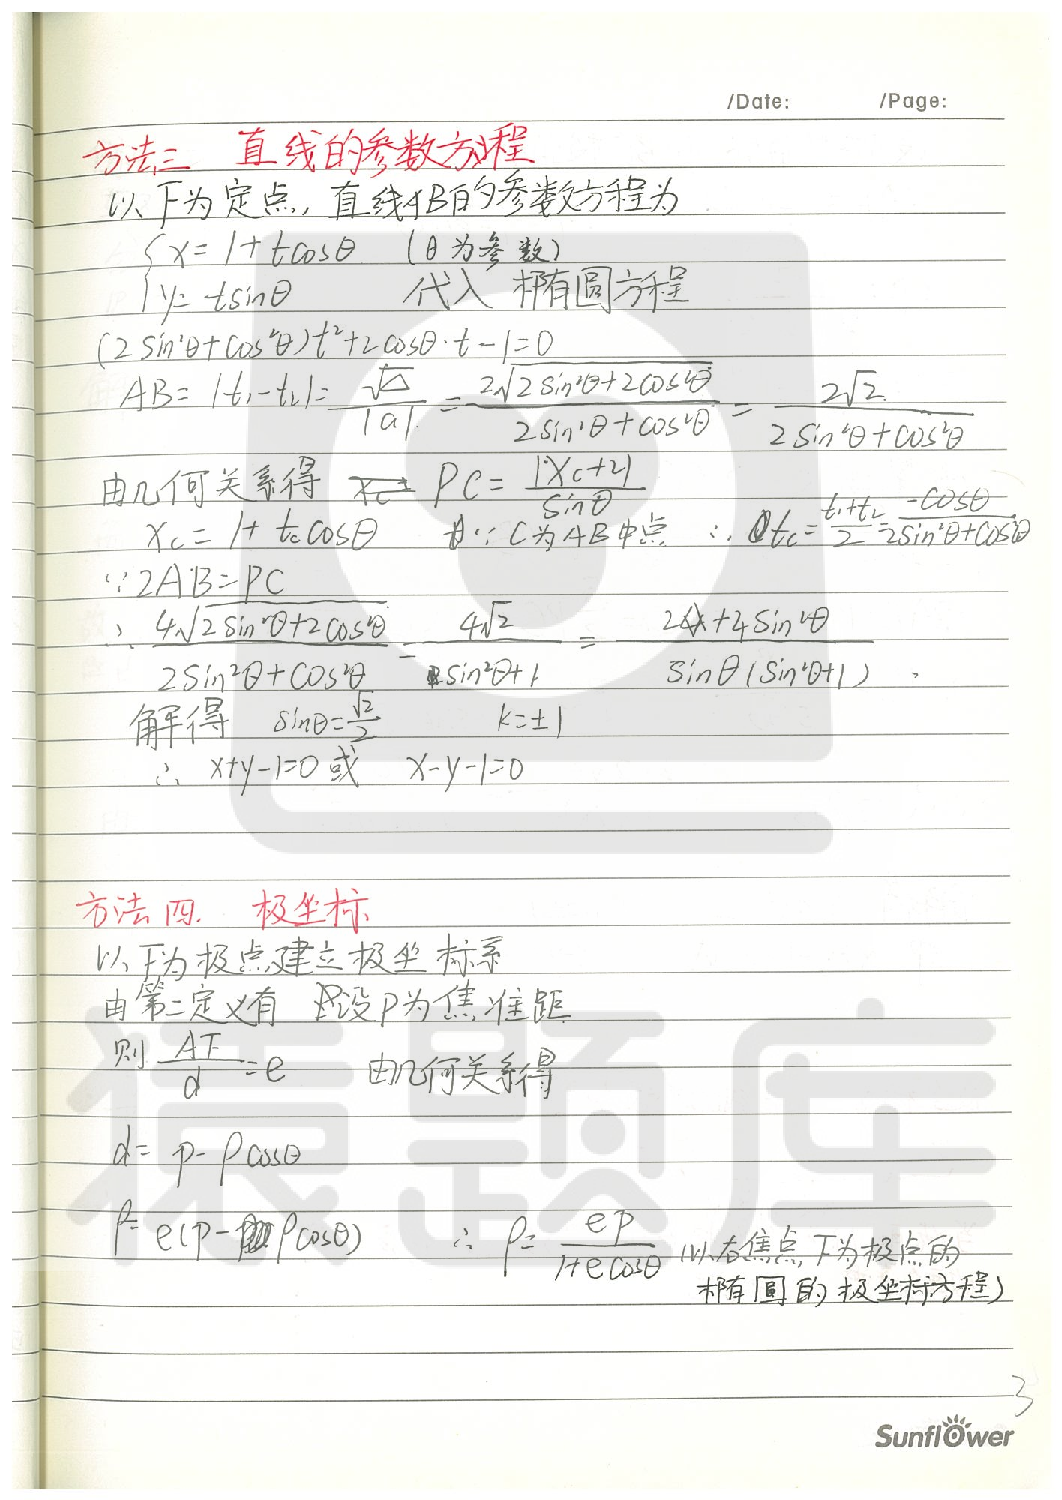 /Date: /Page:
方法三 直线的参数方程
以F为定点，直线AB的参数方程为
{x=1+tcosθ (θ为参数)
y=tsinθ 代入 椭圆方程
(2sin²θ+cos²θ)t²+2cosθ·t-1=0
AB=|t₁-t₂|=√△/|a|=2√(2sin²θ+2cos²θ)/(2sin²θ+cos²θ)=2√2/(2sin²θ+cos²θ)
由几何关系得 PC=|Xc+2|/sinθ
Xc=1+tc cosθ ∵C为AB中点 ∴tc=(t₁+t₂)/2=-cosθ/(2sin²θ+cos²θ)
∵2AB=PC
∴4√(2sin²θ+2cos²θ)/(2sin²θ+cos²θ)=4√2/(sin²θ+1)=(2+4sin²θ)/(sinθ(sin²θ+1)).
解得 sinθ=√2/2 k=±1
∴x+y-1=0或 x-y-1=0
方法四. 极坐标
以F为极点建立极坐标系
由第二定义有 设P为焦准距
则 AF/d=e 由几何关系得
d=p-ρcosθ
ρ=e(p-ρcosθ) ∴ρ=ep/(1+ecosθ) (以右焦点F为极点的
椭圆的极坐标方程)
3
Sunflower
猿题库